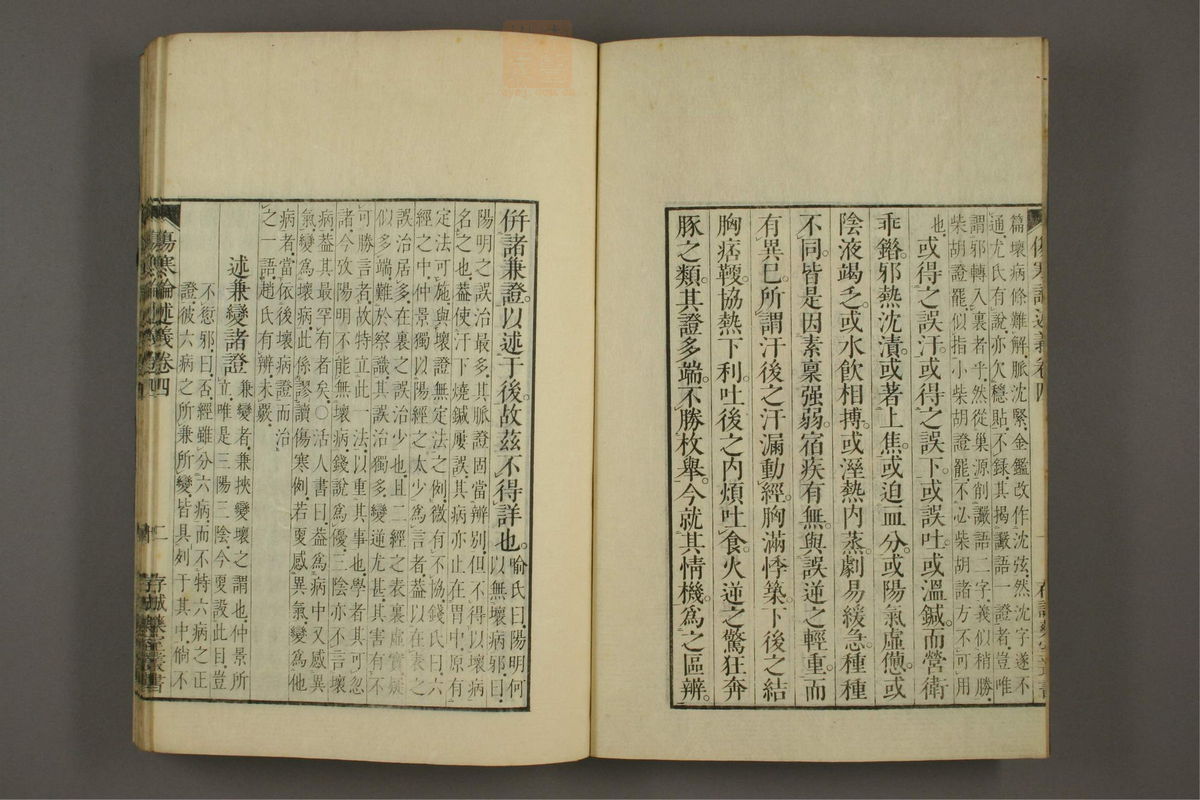 篇壞病條難解脈沈緊金鑑改作沈弦然沈字遂不
通尤氏有說亦欠穩貼不錄其揭讝語一證者豈唯
謂邪轉入裏者乎然從巢源削讝語二字義似稍勝
柴胡證罷似指小柴胡證罷不必柴胡諸方不可用
也。或得之誤汗。或得之誤下。或誤吐。或溫鍼。而營衛
乖錯。邪熱沈漬。或著上焦。或迫血分。或陽氣虛憊。或
陰液竭乏。或水飲相搏。或溼熱內蒸。劇易緩急。種種
不同。皆是因素稟强弱。宿疾有無。與誤逆之輕重。而
有異已。所謂汗後之汗漏動經。胸滿悸築。下後之結
胸痞鞕。協熱下利。吐後之內煩吐食。火逆之驚狂奔
豚之類。其證多端。不勝枚舉。今就其情機。爲之區辨。
傷寒論述義卷四
併諸兼證。以述于後。故茲不得詳也。喻氏曰陽明何以無壞病邪曰
陽明之誤治最多其脈證固當辨別但不得以壞病
名之也蓋使汗下燒鍼屢誤其病亦止在胃中原有
定法可施與壞證無定法之例微有不協錢氏曰六
經之中仲景獨以陽經之太少爲言者蓋以在表之
誤治居多在裏之誤治少也且二經之表裏虛實疑
似多端難於察識其誤治獨多變逆尤甚其害有不
可勝言者故特立此一法以重其事也學者其可忽
諸今攷陽明不能無壞病錢說爲優三陰亦不言壞
病蓋其最罕有者矣○活人書曰蓋爲病中又感異
氣變爲壞病此係謬讀傷寒例若更感異氣變爲他
病者當依後壞病證而治
之一語趙氏有辨未覈
述兼變諸證
兼變者兼挾變壞之謂也仲景所
立唯是三陽三陰今更設此目豈
不愆邪曰否經雖分六病而不特六病之正
證彼六病之所兼所變皆具列于其中倘不
傷寒論述義卷四
十二
存誠藥室叢書